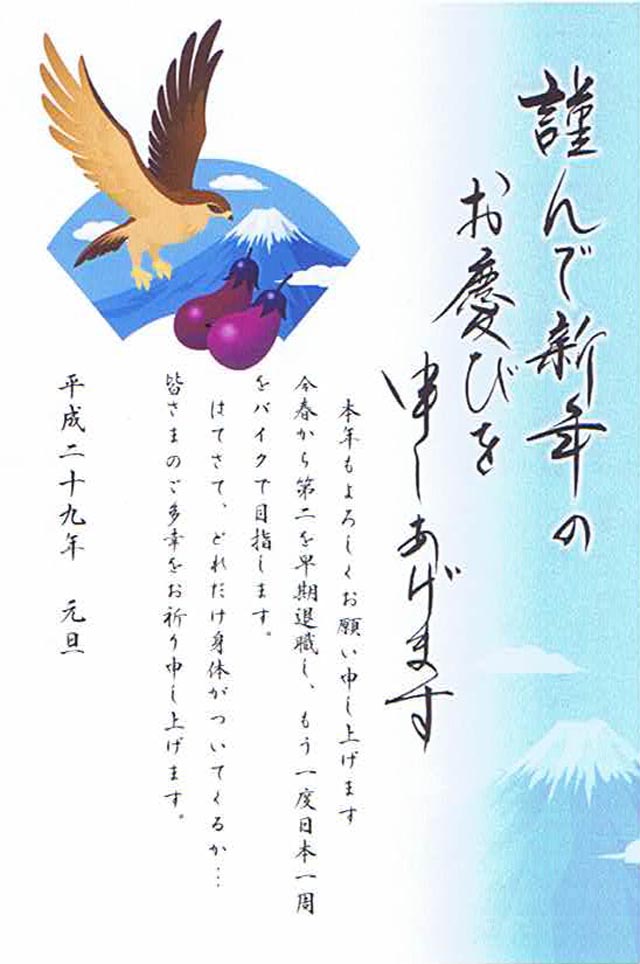 謹んで新年の
お慶びを
申しあげます
本年もよろしくお願い申し上げます
今春から第二を早期退職し、もう一度日本一周
をバイクで目指します。
はてさて、どれだけ身体がついてくるか…
皆さまのご多幸をお祈り申し上げます。
平成二十九年 元旦